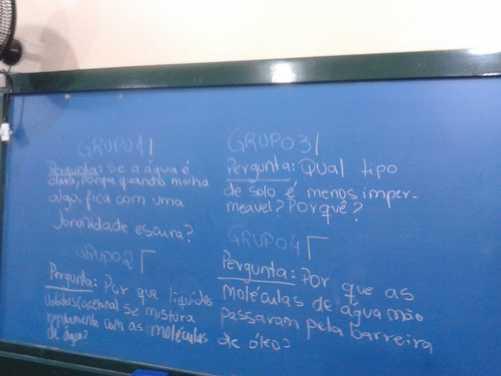 GRUPO 1
Pergunta: Se a água é
clara, porque quando molha
algo, fica com uma
tonalidade escura?
GRUPO 2
Pergunta: Por que líquidos
se mistura
com as moléculas
de água?
GRUPO 3
Pergunta: Qual tipo
de solo é menos imper-
meavel? Porquê?
GRUPO 4
Pergunta: Por que as
moléculas de água não
passaram pela barreira
de óleo?